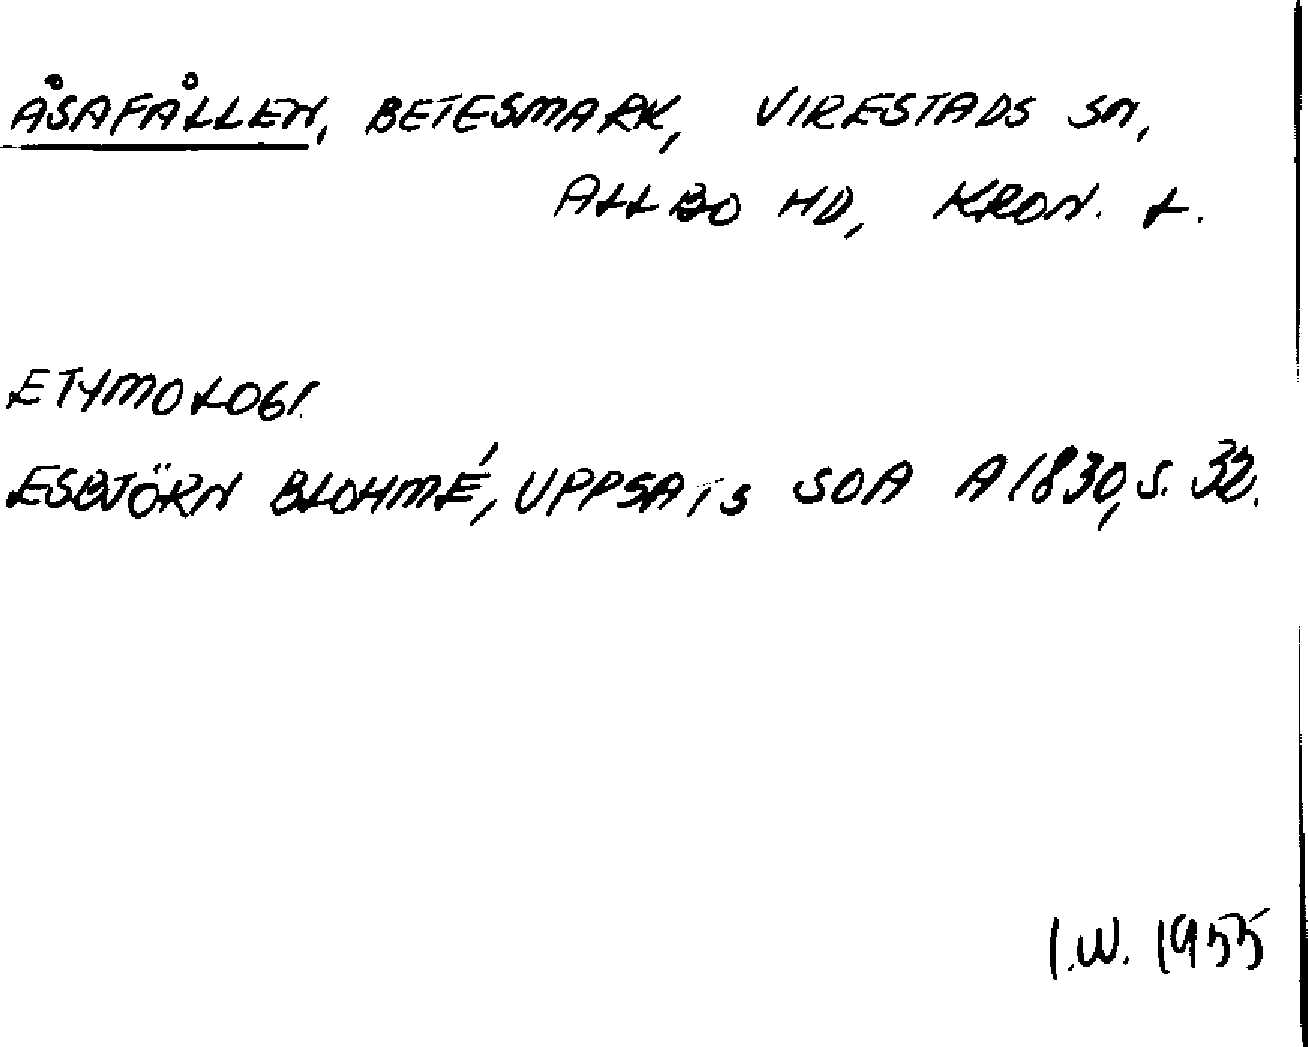 ÅSAFÅLLEN, BETESMARK, VIRESTADS SN,
ALLBO HD, KRON. L.
ETYMOLOGI.
ESBJÖRN BLOHMÉ, UPPSATS SOA A 1830, S. 32.
I.W. 1955